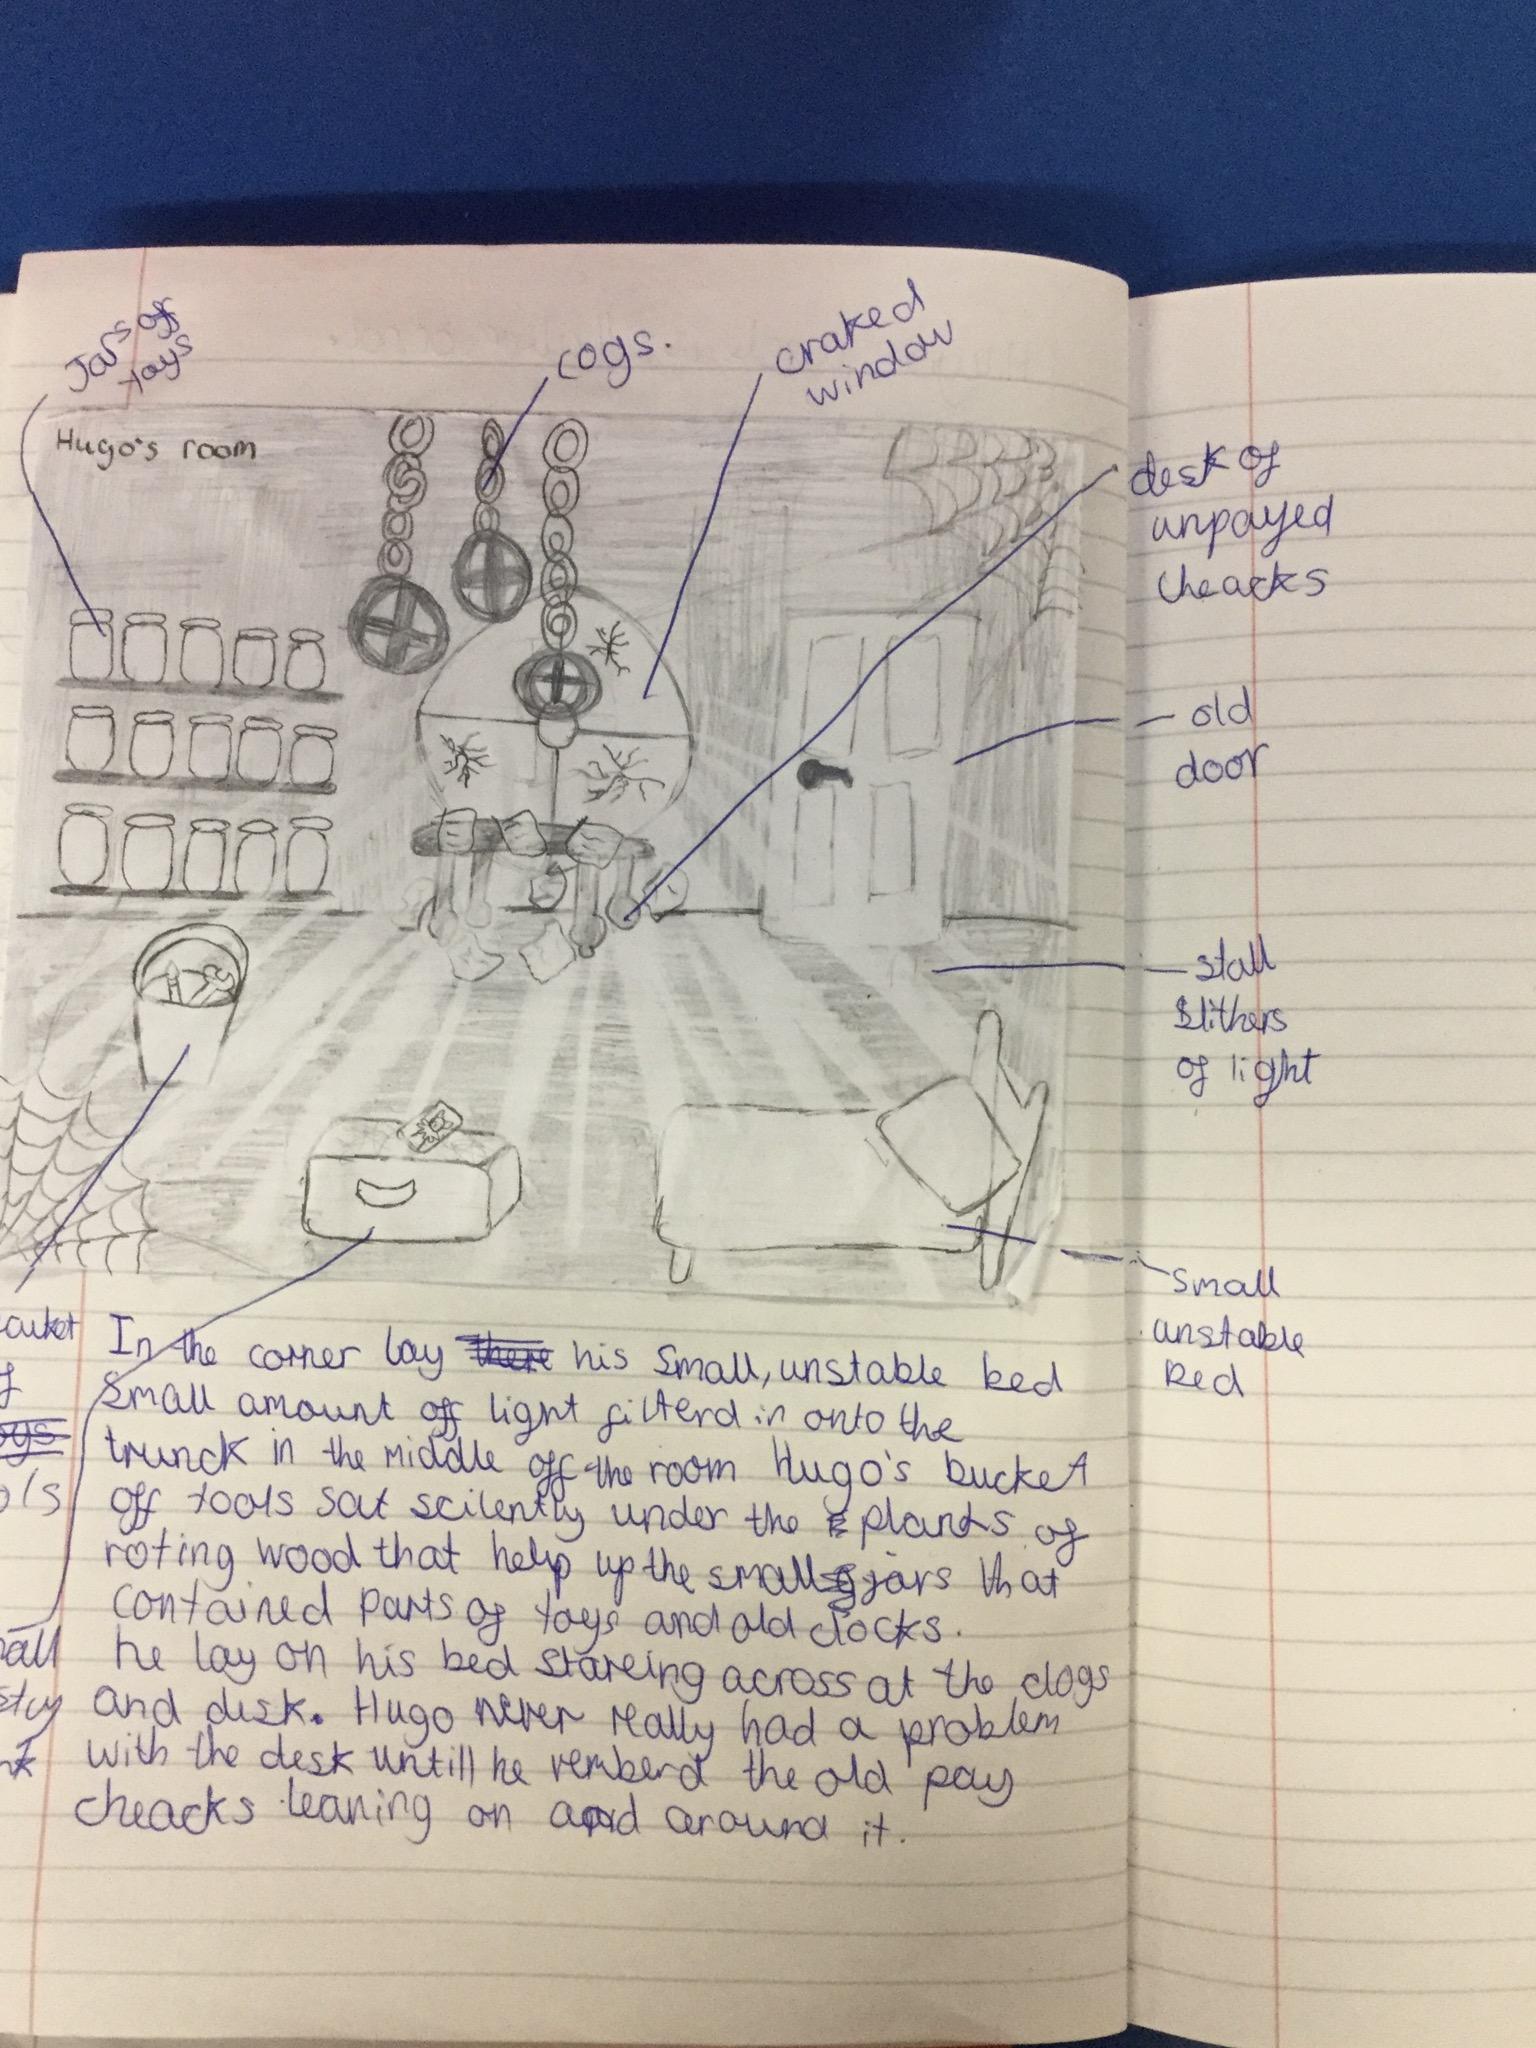 Jars off
toys
cogs.
craked
window
Hugo's room
desk of
unpayed
cheacks
old
door
stall
slithers
of light
small
unstable
bed
In the corner lay there his small, unstable bed
small amount off light filterd in onto the
trunck in the middle off the room Hugo's bucket
off tools sat scilently under the plants of
roting wood that help up the small jars that
contained parts of toys and old clocks.
he lay on his bed stareing across at the clogs
and disk. Hugo never really had a problem
with the desk untill he remberd the old pay
cheacks leaning on and around it.